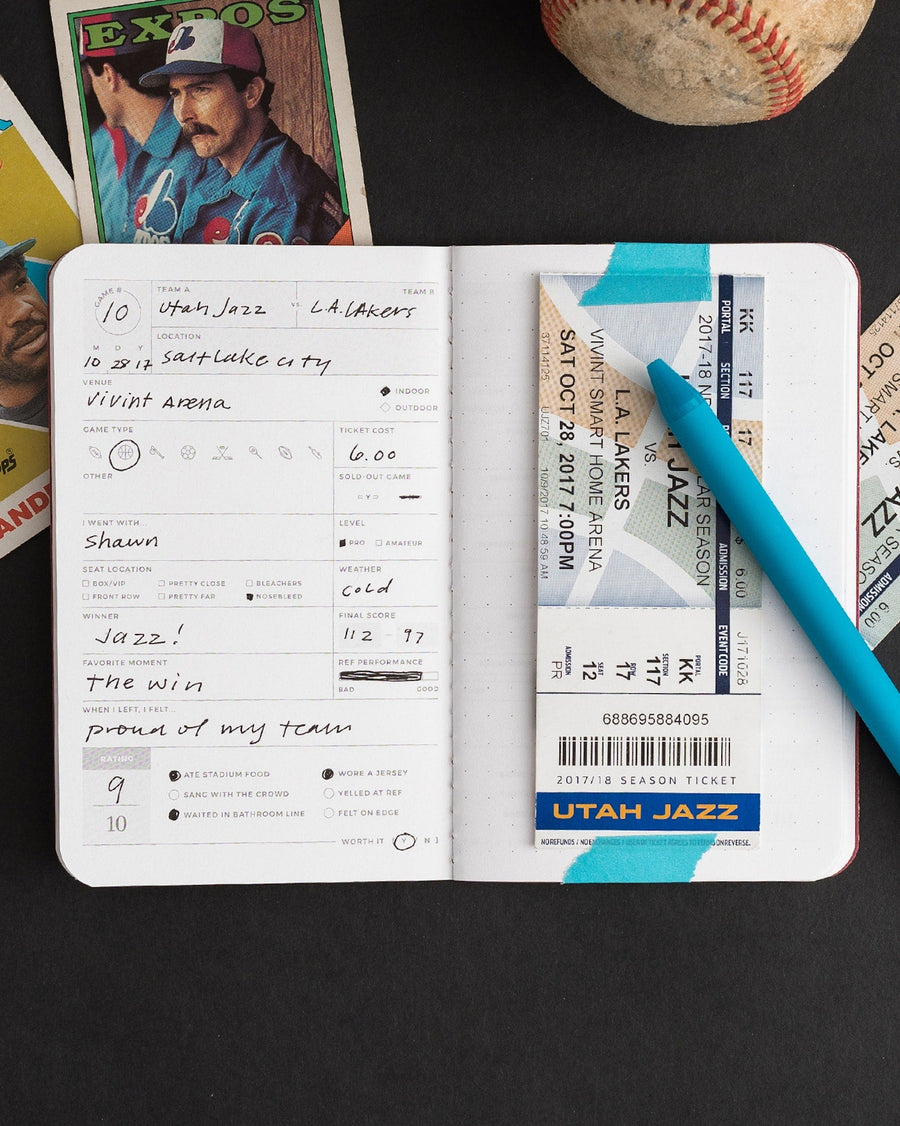 EXPOS
GAME #
10
TEAM A
Utah Jazz
vs.
TEAM B
L.A. LAkers
M D Y
10 28 17
LOCATION
Salt Lake City
VENUE
Vivint Arena
INDOOR
OUTDOOR
GAME TYPE
OTHER
TICKET COST
6.00
SOLD-OUT GAME
Y
I WENT WITH...
Shawn
LEVEL
PRO AMATEUR
SEAT LOCATION
BOX/VIP PRETTY CLOSE BLEACHERS
FRONT ROW PRETTY FAR NOSEBLEED
WEATHER
cold
WINNER
Jazz!
FINAL SCORE
112 - 97
FAVORITE MOMENT
the win
REF PERFORMANCE
BAD GOOD
WHEN I LEFT, I FELT...
proud of my team
RATING
9
10
ATE STADIUM FOOD WORE A JERSEY
SANG WITH THE CROWD YELLED AT REF
WAITED IN BATHROOM LINE FELT ON EDGE
WORTH IT Y N
KK 117 17
PORTAL SECTION
ADMISSION EVENT CODE
6.00 J171028
2017-18
SEASON
JAZZ
VS.
L.A. LAKERS
VIVINT SMART HOME ARENA
SAT OCT 28, 2017 7:00PM
37114125
10/9/2017 10:48:59 AM
PORTAL
KK
SECTION
117
ROW
17
SEAT
12
ADMISSION
PR
688695884095
2017/18 SEASON TICKET
UTAH JAZZ
OCT
SMART
LAKE
AZZ
SEASON
ADMISSION
6.00